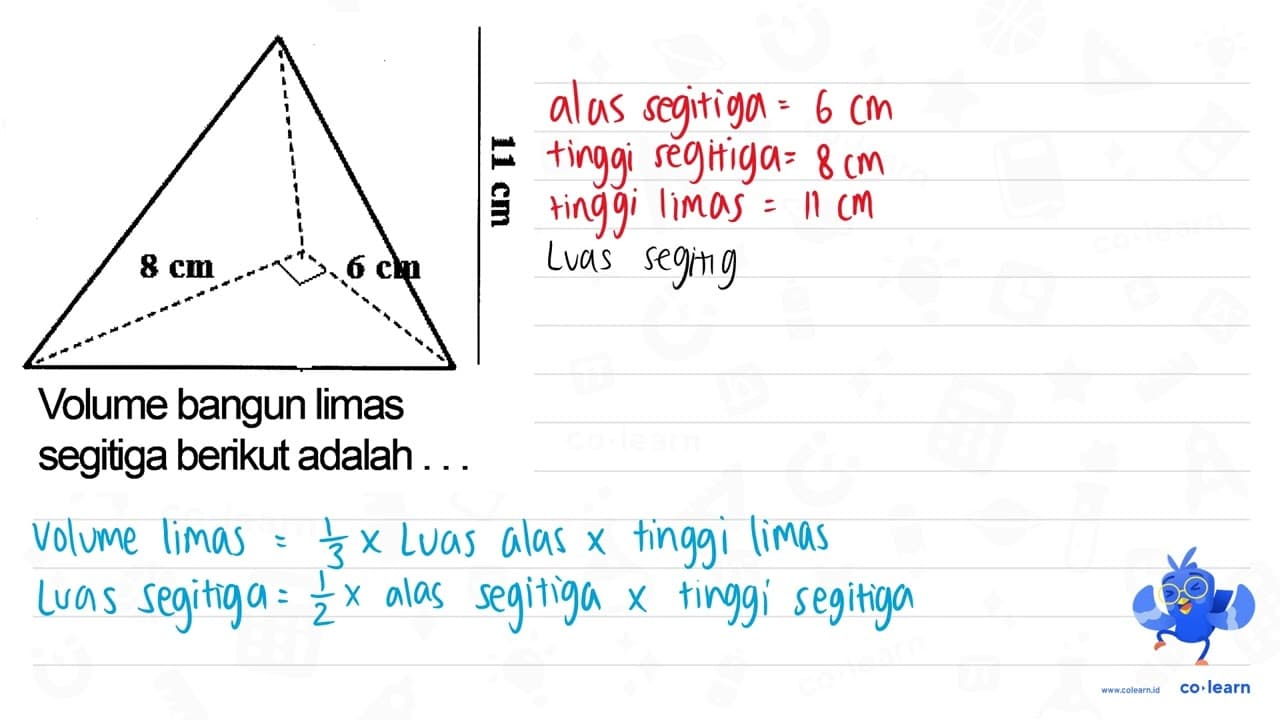 11 cm
8 cm
6 cm
Volume bangun limas
segitiga berikut adalah . . .
alas segitiga = 6 cm
tinggi segitiga = 8 cm
tinggi limas = 11 cm
Luas segitig
Volume limas = 1/3 x Luas alas x tinggi limas
Luas segitiga = 1/2 x alas segitiga x tinggi segitiga
www.colearn.id
co·learn